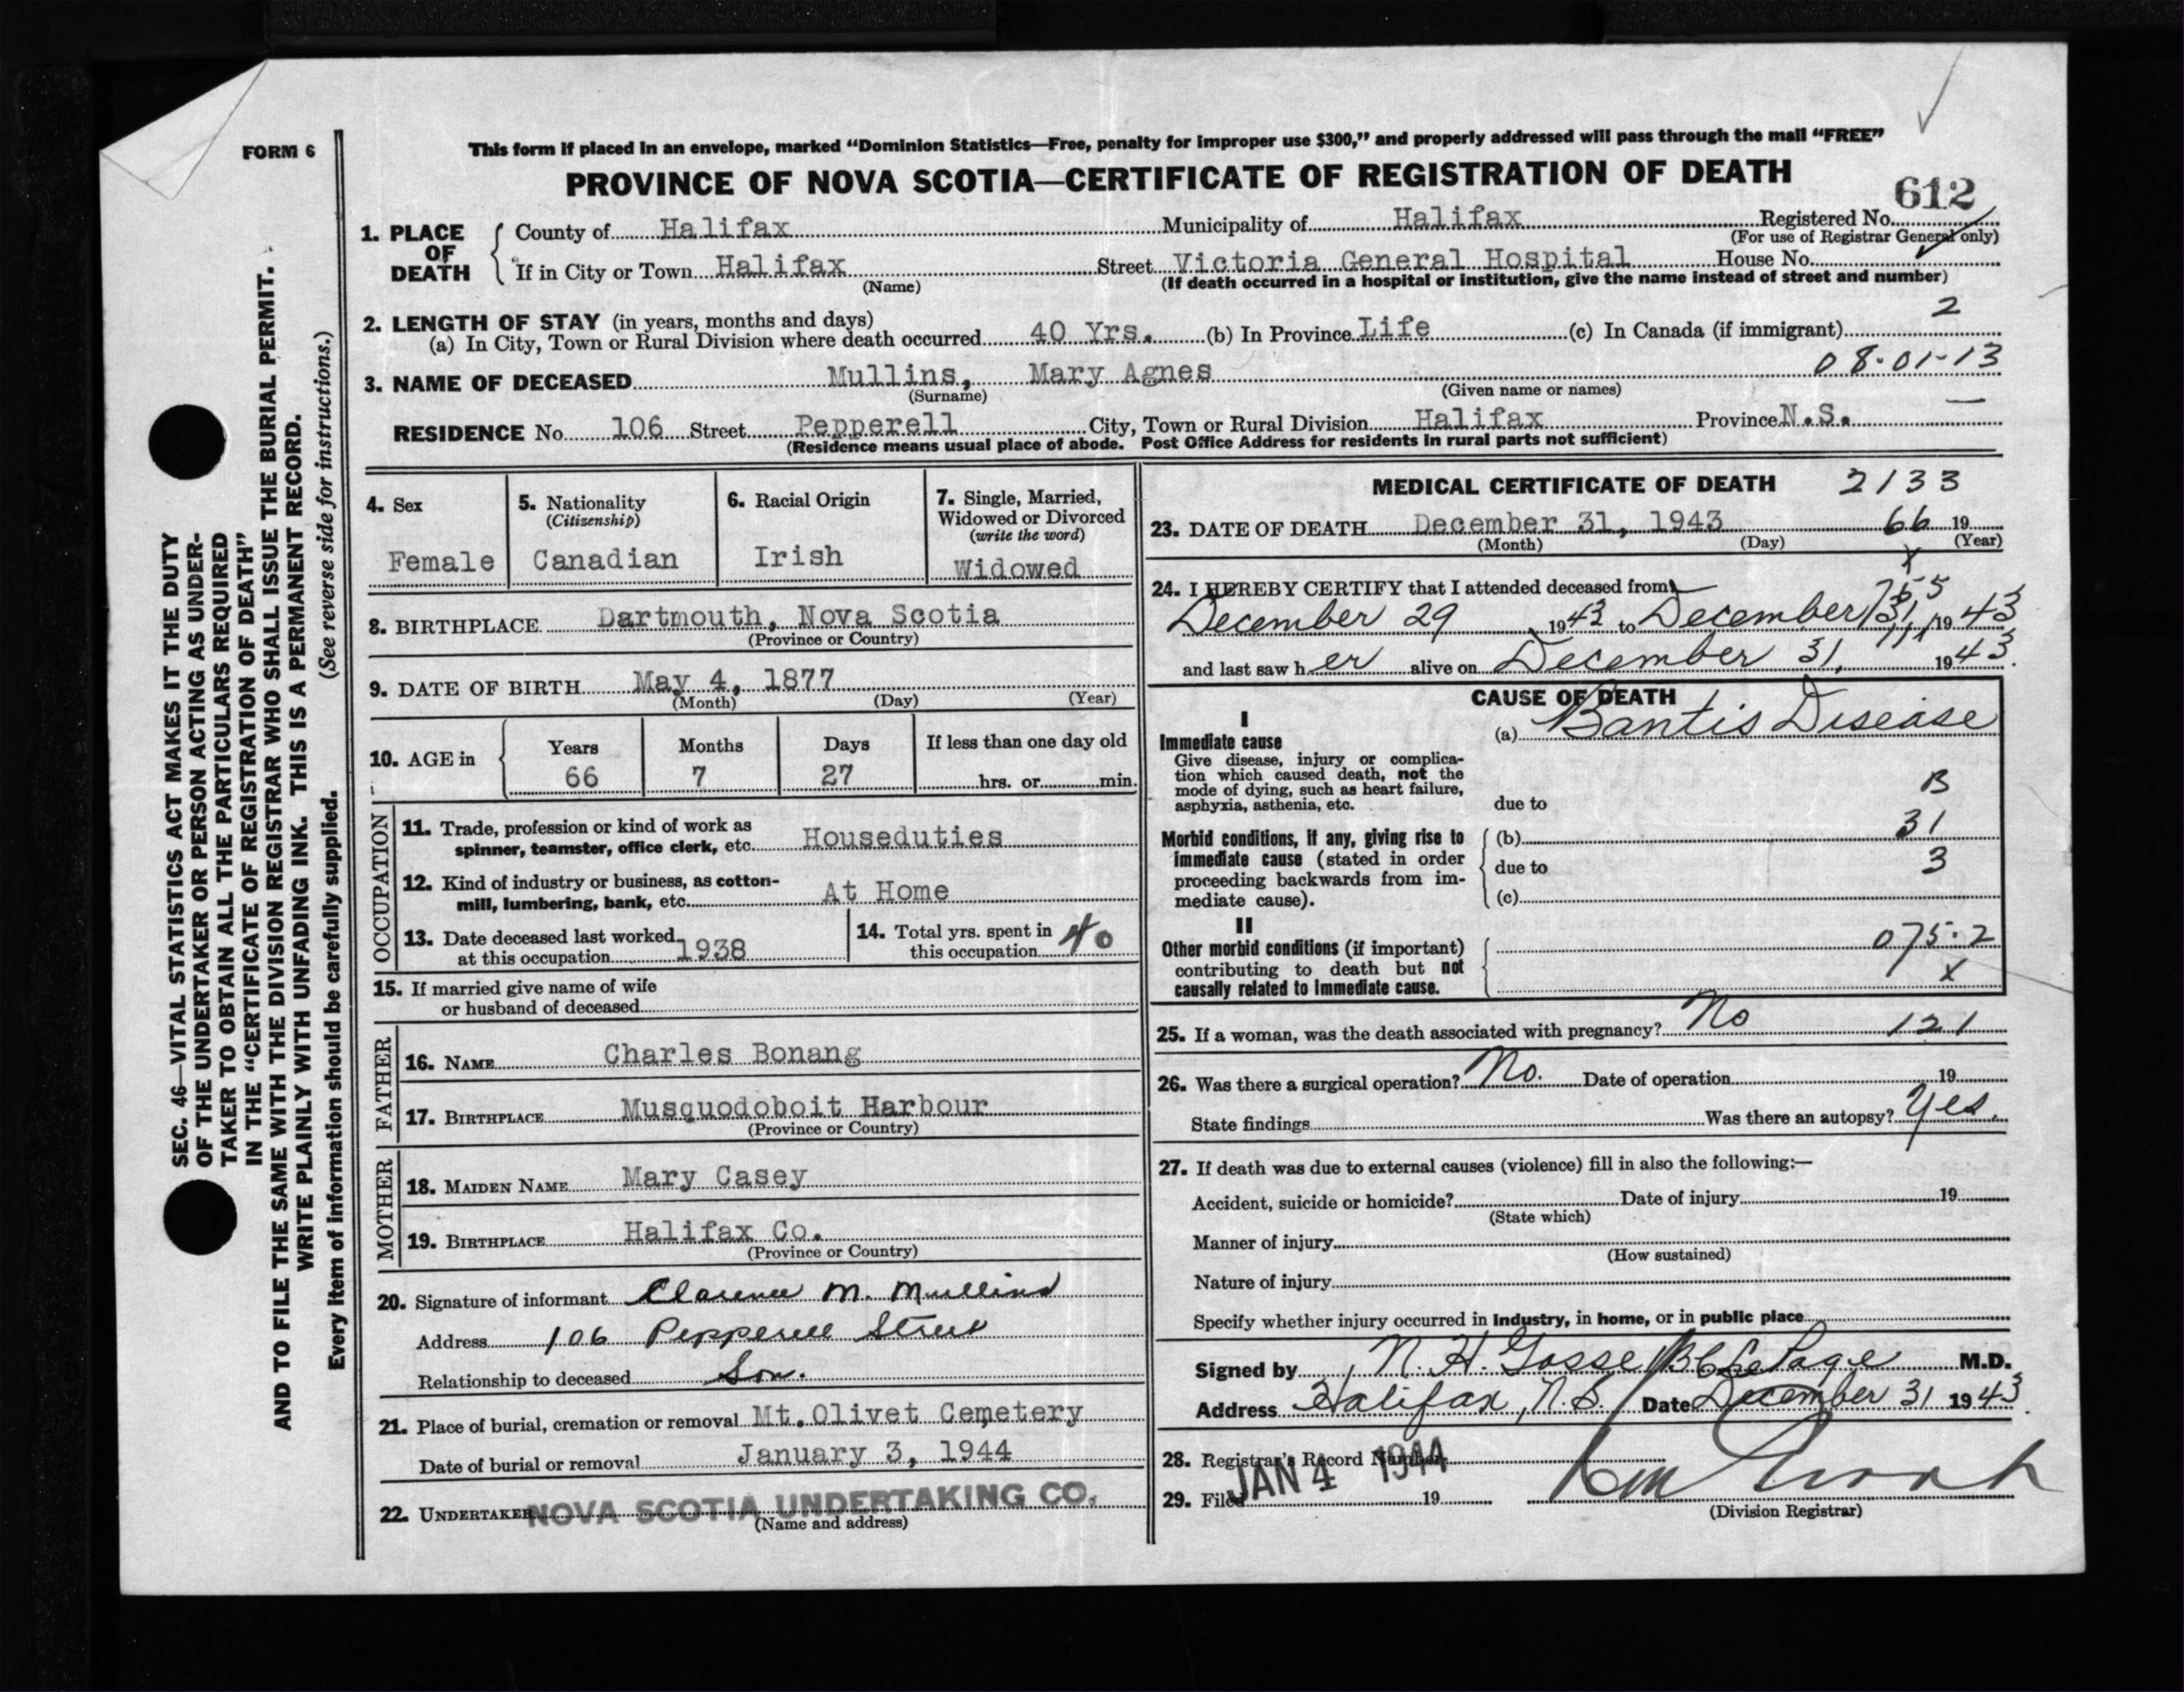 FORM 6
This form if placed in an envelope, marked “Dominion Statistics—Free, penalty for improper use $300,” and properly addressed will pass through the mail “FREE”
PROVINCE OF NOVA SCOTIA—CERTIFICATE OF REGISTRATION OF DEATH
612
1. PLACE OF DEATH County of Halifax Municipality of Halifax Registered No.
(For use of Registrar General only)
If in City or Town Halifax Street Victoria General Hospital House No.
(Name) (If death occurred in a hospital or institution, give the name instead of street and number)
2. LENGTH OF STAY (in years, months and days) 2
(a) In City, Town or Rural Division where death occurred 40 Yrs. (b) In Province Life (c) In Canada (if immigrant)
08-01-13
3. NAME OF DECEASED Mullins, Mary Agnes
(Surname) (Given name or names)
RESIDENCE No. 106 Street Pepperell City, Town or Rural Division Halifax Province N.S.
(Residence means usual place of abode. Post Office Address for residents in rural parts not sufficient)
4. Sex
Female
5. Nationality
(Citizenship)
Canadian
6. Racial Origin
Irish
7. Single, Married,
Widowed or Divorced
(write the word)
Widowed
8. BIRTHPLACE Dartmouth, Nova Scotia
(Province or Country)
9. DATE OF BIRTH May 4, 1877
(Month) (Day) (Year)
10. AGE in Years Months Days If less than one day old
66 7 27 hrs. or min.
OCCUPATION
11. Trade, profession or kind of work as
spinner, teamster, office clerk, etc. Houseduties
12. Kind of industry or business, as cotton-
mill, lumbering, bank, etc. At Home
13. Date deceased last worked
at this occupation 1938
14. Total yrs. spent in
this occupation 40
15. If married give name of wife
or husband of deceased
FATHER
16. NAME Charles Bonang
17. BIRTHPLACE Musquodoboit Harbour
(Province or Country)
MOTHER
18. MAIDEN NAME Mary Casey
19. BIRTHPLACE Halifax Co.
(Province or Country)
20. Signature of informant Clarence M. Mullins
Address 106 Pepperell Street
Relationship to deceased Son.
21. Place of burial, cremation or removal Mt. Olivet Cemetery
Date of burial or removal January 3, 1944
22. UNDERTAKER NOVA SCOTIA UNDERTAKING CO.
(Name and address)
MEDICAL CERTIFICATE OF DEATH 2133
23. DATE OF DEATH December 31, 1943 66 19
(Month) (Day) (Year)
X
24. I HEREBY CERTIFY that I attended deceased from
December 29 1943 to December 31, 1943
and last saw her alive on December 31, 1943.
CAUSE OF DEATH
I
Immediate cause
Give disease, injury or complica-
tion which caused death, not the
mode of dying, such as heart failure,
asphyxia, asthenia, etc.
(a) Bantis Disease
B
due to
Morbid conditions, if any, giving rise to
immediate cause (stated in order
proceeding backwards from im-
mediate cause).
(b) 31
due to 3
(c)
II
Other morbid conditions (if important)
contributing to death but not
causally related to immediate cause.
075.2
X
25. If a woman, was the death associated with pregnancy? No 121
26. Was there a surgical operation? No. Date of operation 19
State findings Was there an autopsy? Yes.
27. If death was due to external causes (violence) fill in also the following:—
Accident, suicide or homicide? Date of injury 19
(State which)
Manner of injury
(How sustained)
Nature of injury
Specify whether injury occurred in industry, in home, or in public place
Signed by N. H. Gosse / B C LePage M.D.
Address Halifax, N.S. Date December 31 1943.
28. Registrar's Record Number
29. Filed JAN 4 1944 19
(Division Registrar)
SEC. 46—VITAL STATISTICS ACT MAKES IT THE DUTY
OF THE UNDERTAKER OR PERSON ACTING AS UNDER-
TAKER TO OBTAIN ALL THE PARTICULARS REQUIRED
IN THE “CERTIFICATE OF REGISTRATION OF DEATH”
AND TO FILE THE SAME WITH THE DIVISION REGISTRAR WHO SHALL ISSUE THE BURIAL PERMIT.
WRITE PLAINLY WITH UNFADING INK. THIS IS A PERMANENT RECORD.
Every item of information should be carefully supplied. (See reverse side for instructions.)